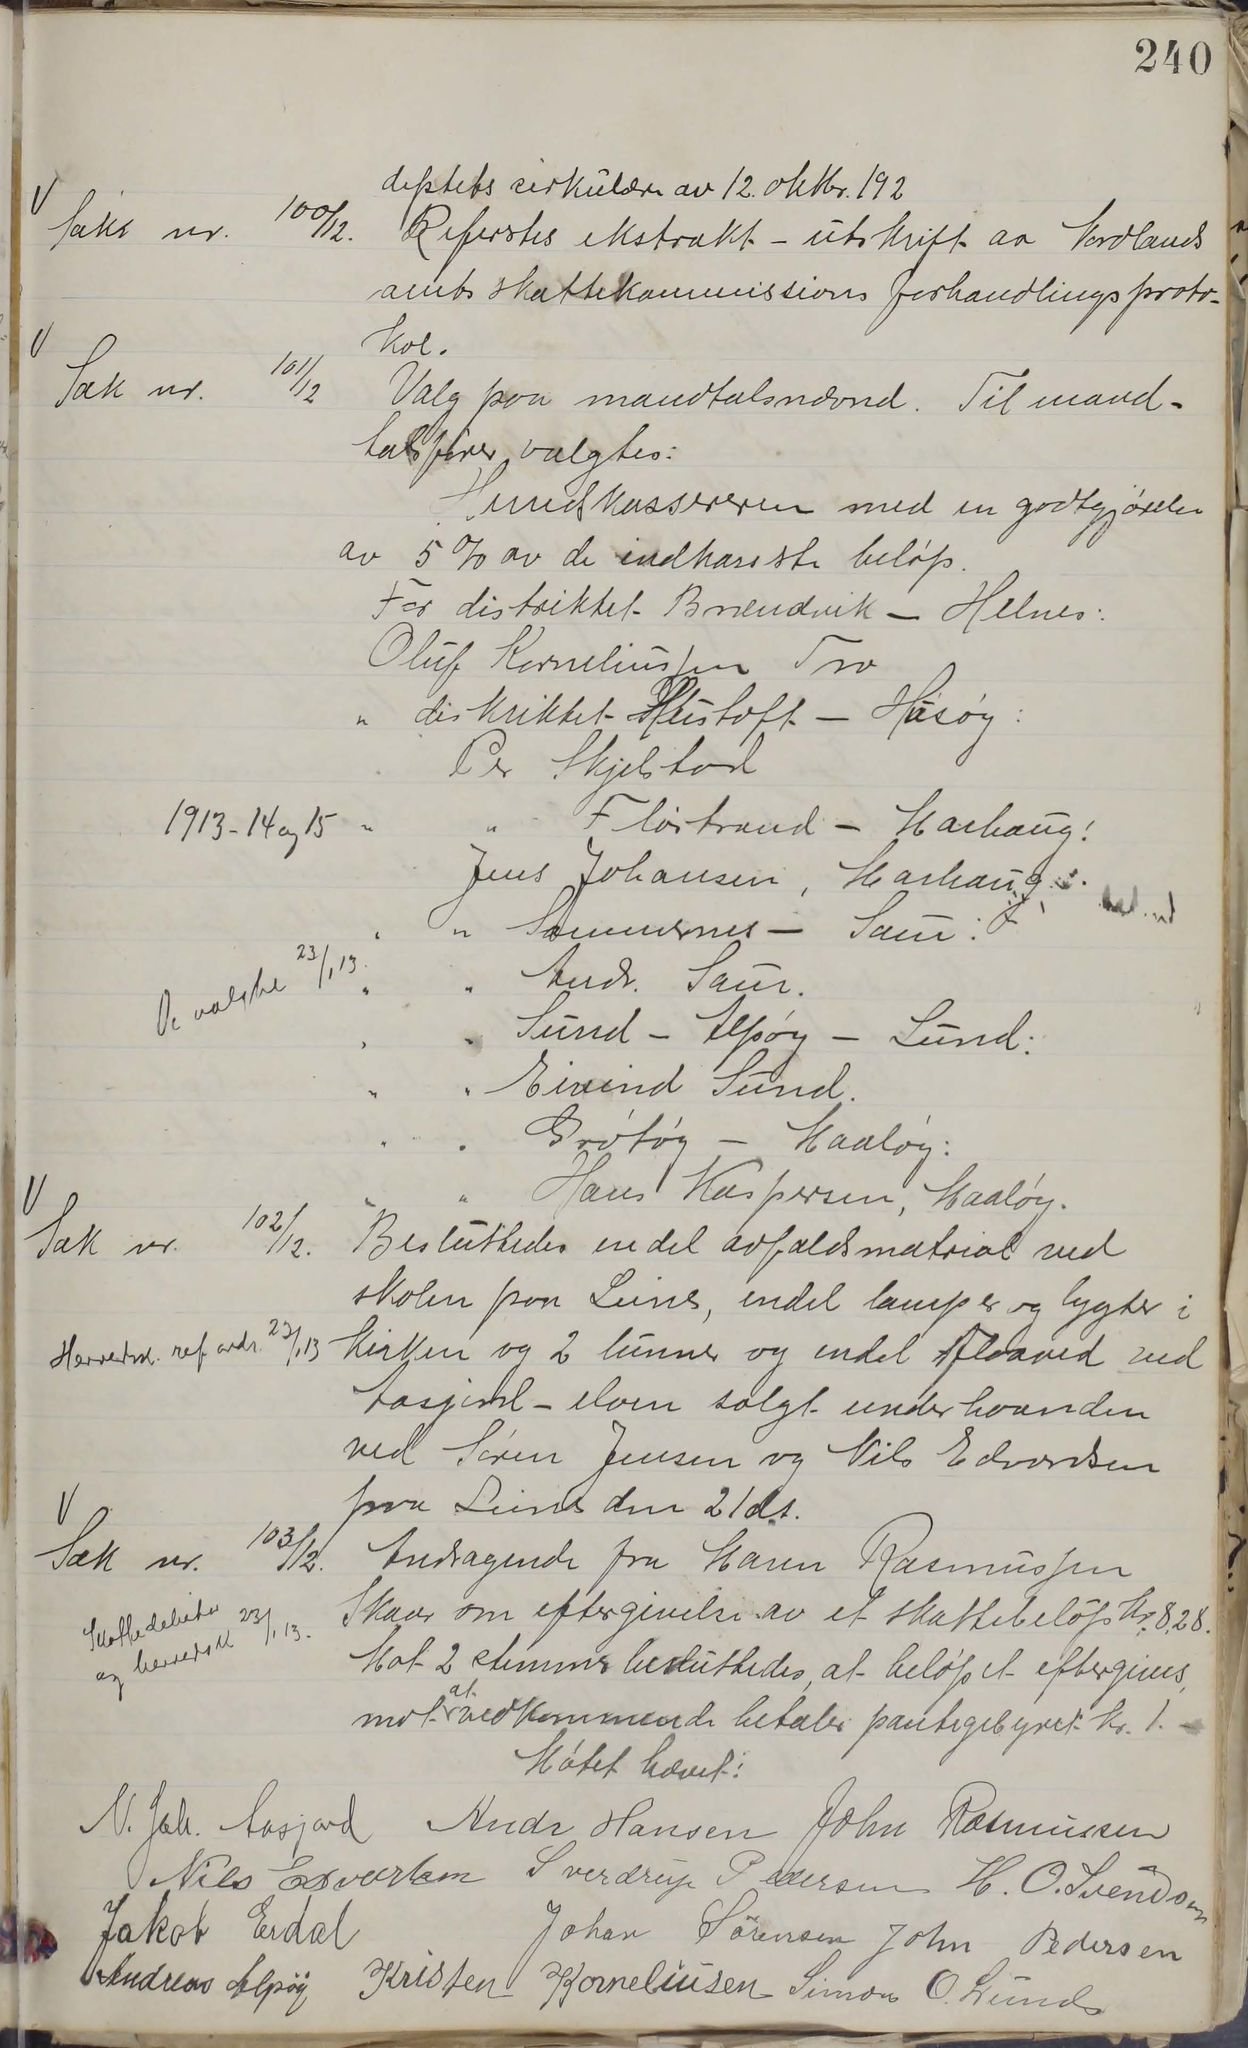 240
deptets cirkulære av 12. oktbr. 192
Saks nr. 100/12. Referertes ekstrakt-utskrift av Nordlands
amts skattekommissions forhandlingsproto-
kol.
Sak nr. 101/12 Valg paa mandtalsnævnd. Til mand-
talsfører valgtes:
Hundskassereren med en godtgjørelse
av 5% av de indkasserte beløp.
For distriktet Brændvik - Helnes:
Oluf Korneliussen Trø
" distriktet Hustoft - Husøy:
Per Skjelstad
1913-14 og 15 " " Fløstrand - Marhaug:
Jens Johansen, Marhaug.
" " Sommernes - Saur:
De valgte 23/1 13. " " Andr. Saur.
" " Sund - Alpøy - Lund:
" " Eivind Sund.
" " Grøtøy - Maaløy:
" " Hans Kaspersen, Maaløy.
Sak nr. 102/12. Besluttedes endel avfaldsmatrial ved
skolen paa Leines, endel lamper og lygter i
Herredsk. ref ordr. 23/1 13 kirken og 2 tunner og endel floaved ved
Aasjord-elven solgt underhaanden
ved Søren Jensen og Nils Edvardsen
paa Leines den 21 ds.
Sak nr. 103/12. Andragende fra Maren Rasmussen
Skattedebiter Skaar om eftergivelse av et skattebeløp kr. 8,28.
og herredsk 23/1 13. Mot 2 stemmer besluttedes, at beløpet eftergives,
mot at vedkommende betaler pantegebyret kr. 1.
Møtet hævet:
N. Joh. Aasjord Andr Hansen John Rasmussen
Nils Edvartsen Sverdrup Pedersen H. O. Svendsen
Jakob Erdal Johan Sørensen John Pedersen
Andreas Alpøy Kristen Korneliusen Simon O. Lund